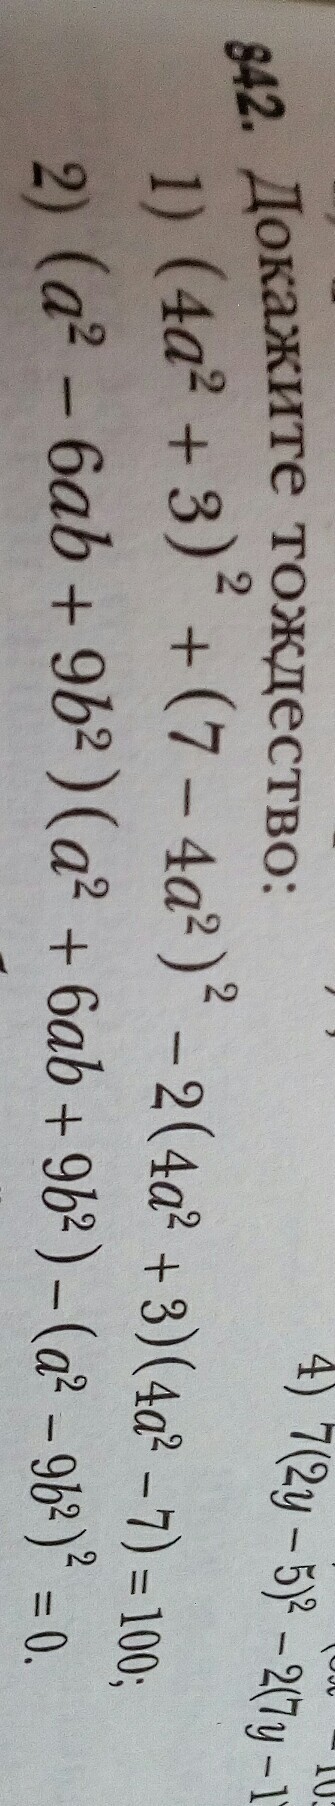 4) 7(2y − 5)² − 2(7y − 1
842. Докажите тождество:
1) (4a² + 3)² + (7 − 4a²)² − 2(4a² + 3)(4a² − 7) = 100;
2) (a² − 6ab + 9b²)(a² + 6ab + 9b²) − (a² − 9b²)² = 0.